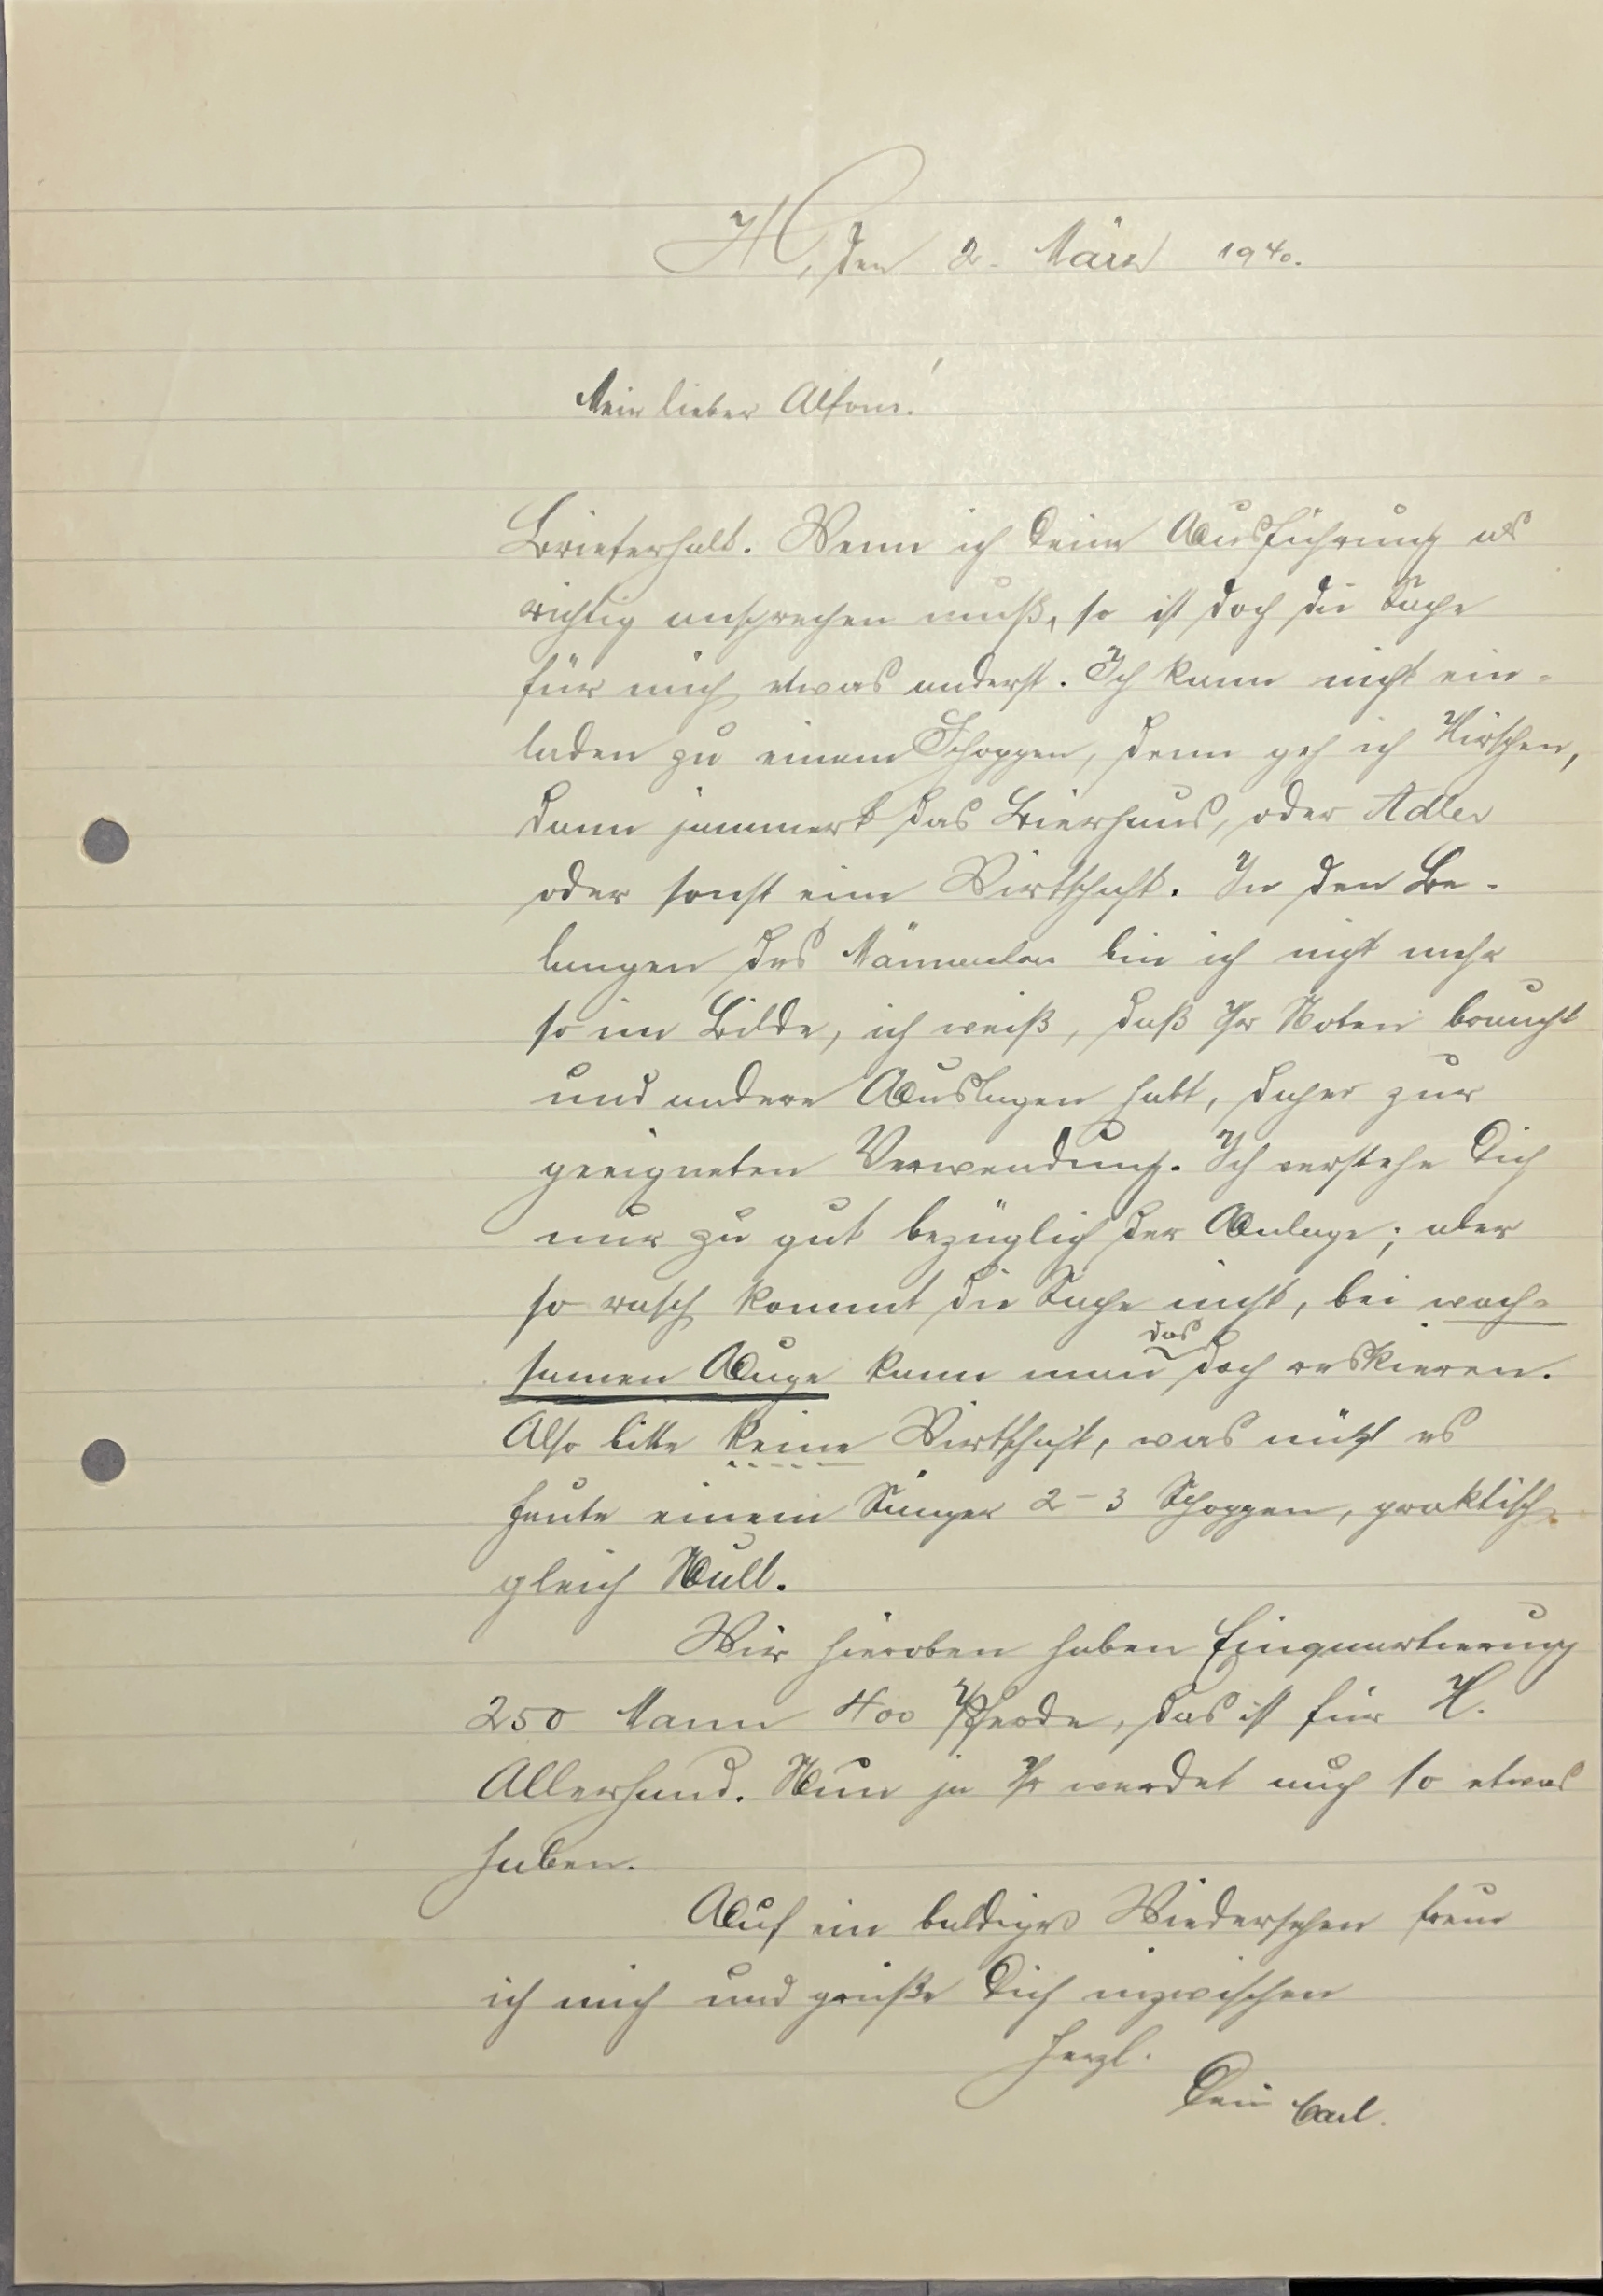 H, den 2. März 1940.
Mein lieber Alfons!
Brieferhalt. Wenn ich Deine Ausführung als
richtig ansprechen muß, so ist doch die Sache
für mich etwas anderst. Ich kann nicht ein-
laden zu einem Schoppen, denn geh ich Hirschen,
dann jammert das Bierhaus, oder Adler
oder sonst eine Wirtschaft. In den Be-
langen des bin ich nicht mehr
so im Bilde, ich weiß, daß Ihr Noten braucht
und andere Auslagen habt, daher zur
geeigneten Verwendung. Ich verstehe Dich
nur zu gut bezüglich der Anlage; aber
so rasch kommt die Sache nicht, bei wach-
samen Auge kann man das doch reskieren.
Also bitte keine Wirtschaft, was nützt es
heute einem Sänger 2-3 Schoppen, praktisch
gleich Null.
Wir hieroben haben Einquartierung
250 Mann 400 Pferde, das ist für H.
Allerhand. Nun ja Ihr werdet auch so etwas
haben.
Auf ein baldiges Wiedersehen freue
ich mich und grüße Dich inzwischen
herzl.
Dein Carl.